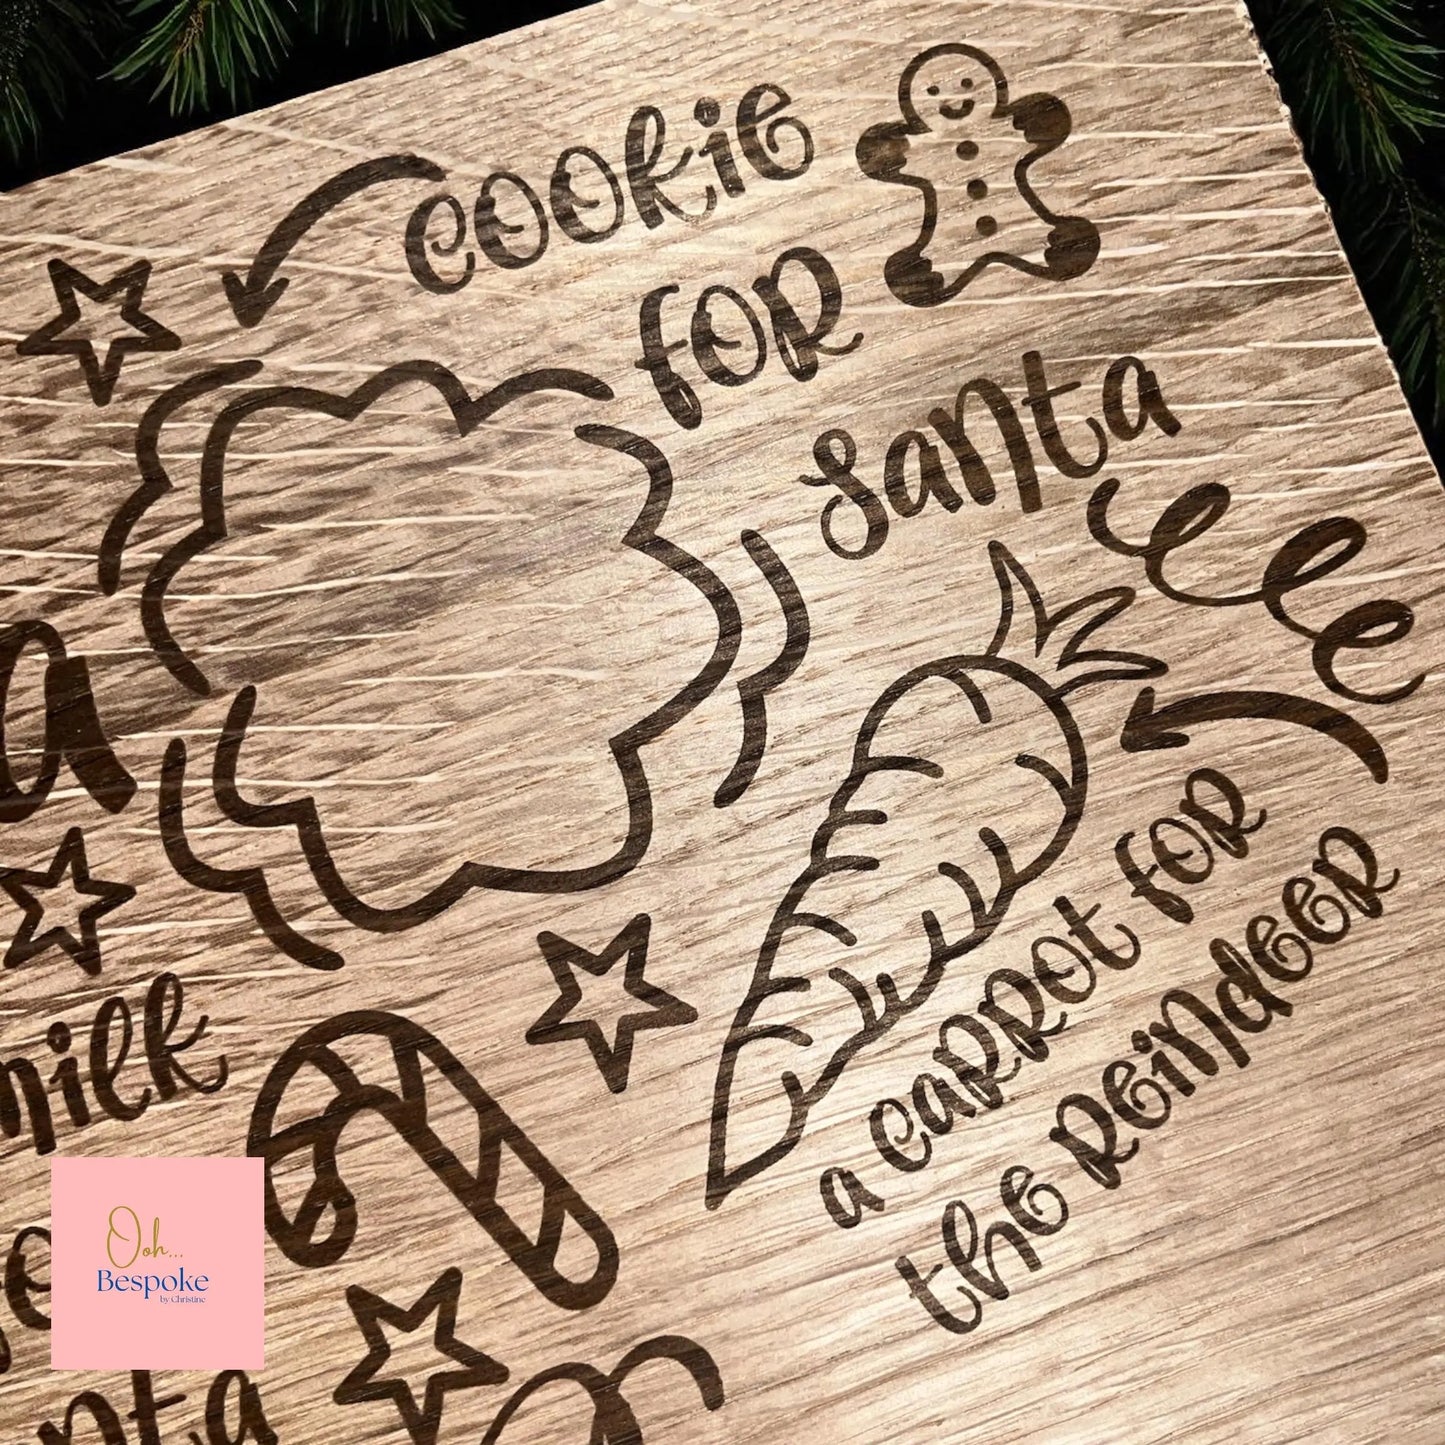 cookie
for
santa
a carrot for
the reindeer
a
milk
santa
Ooh...
Bespoke
by Christine